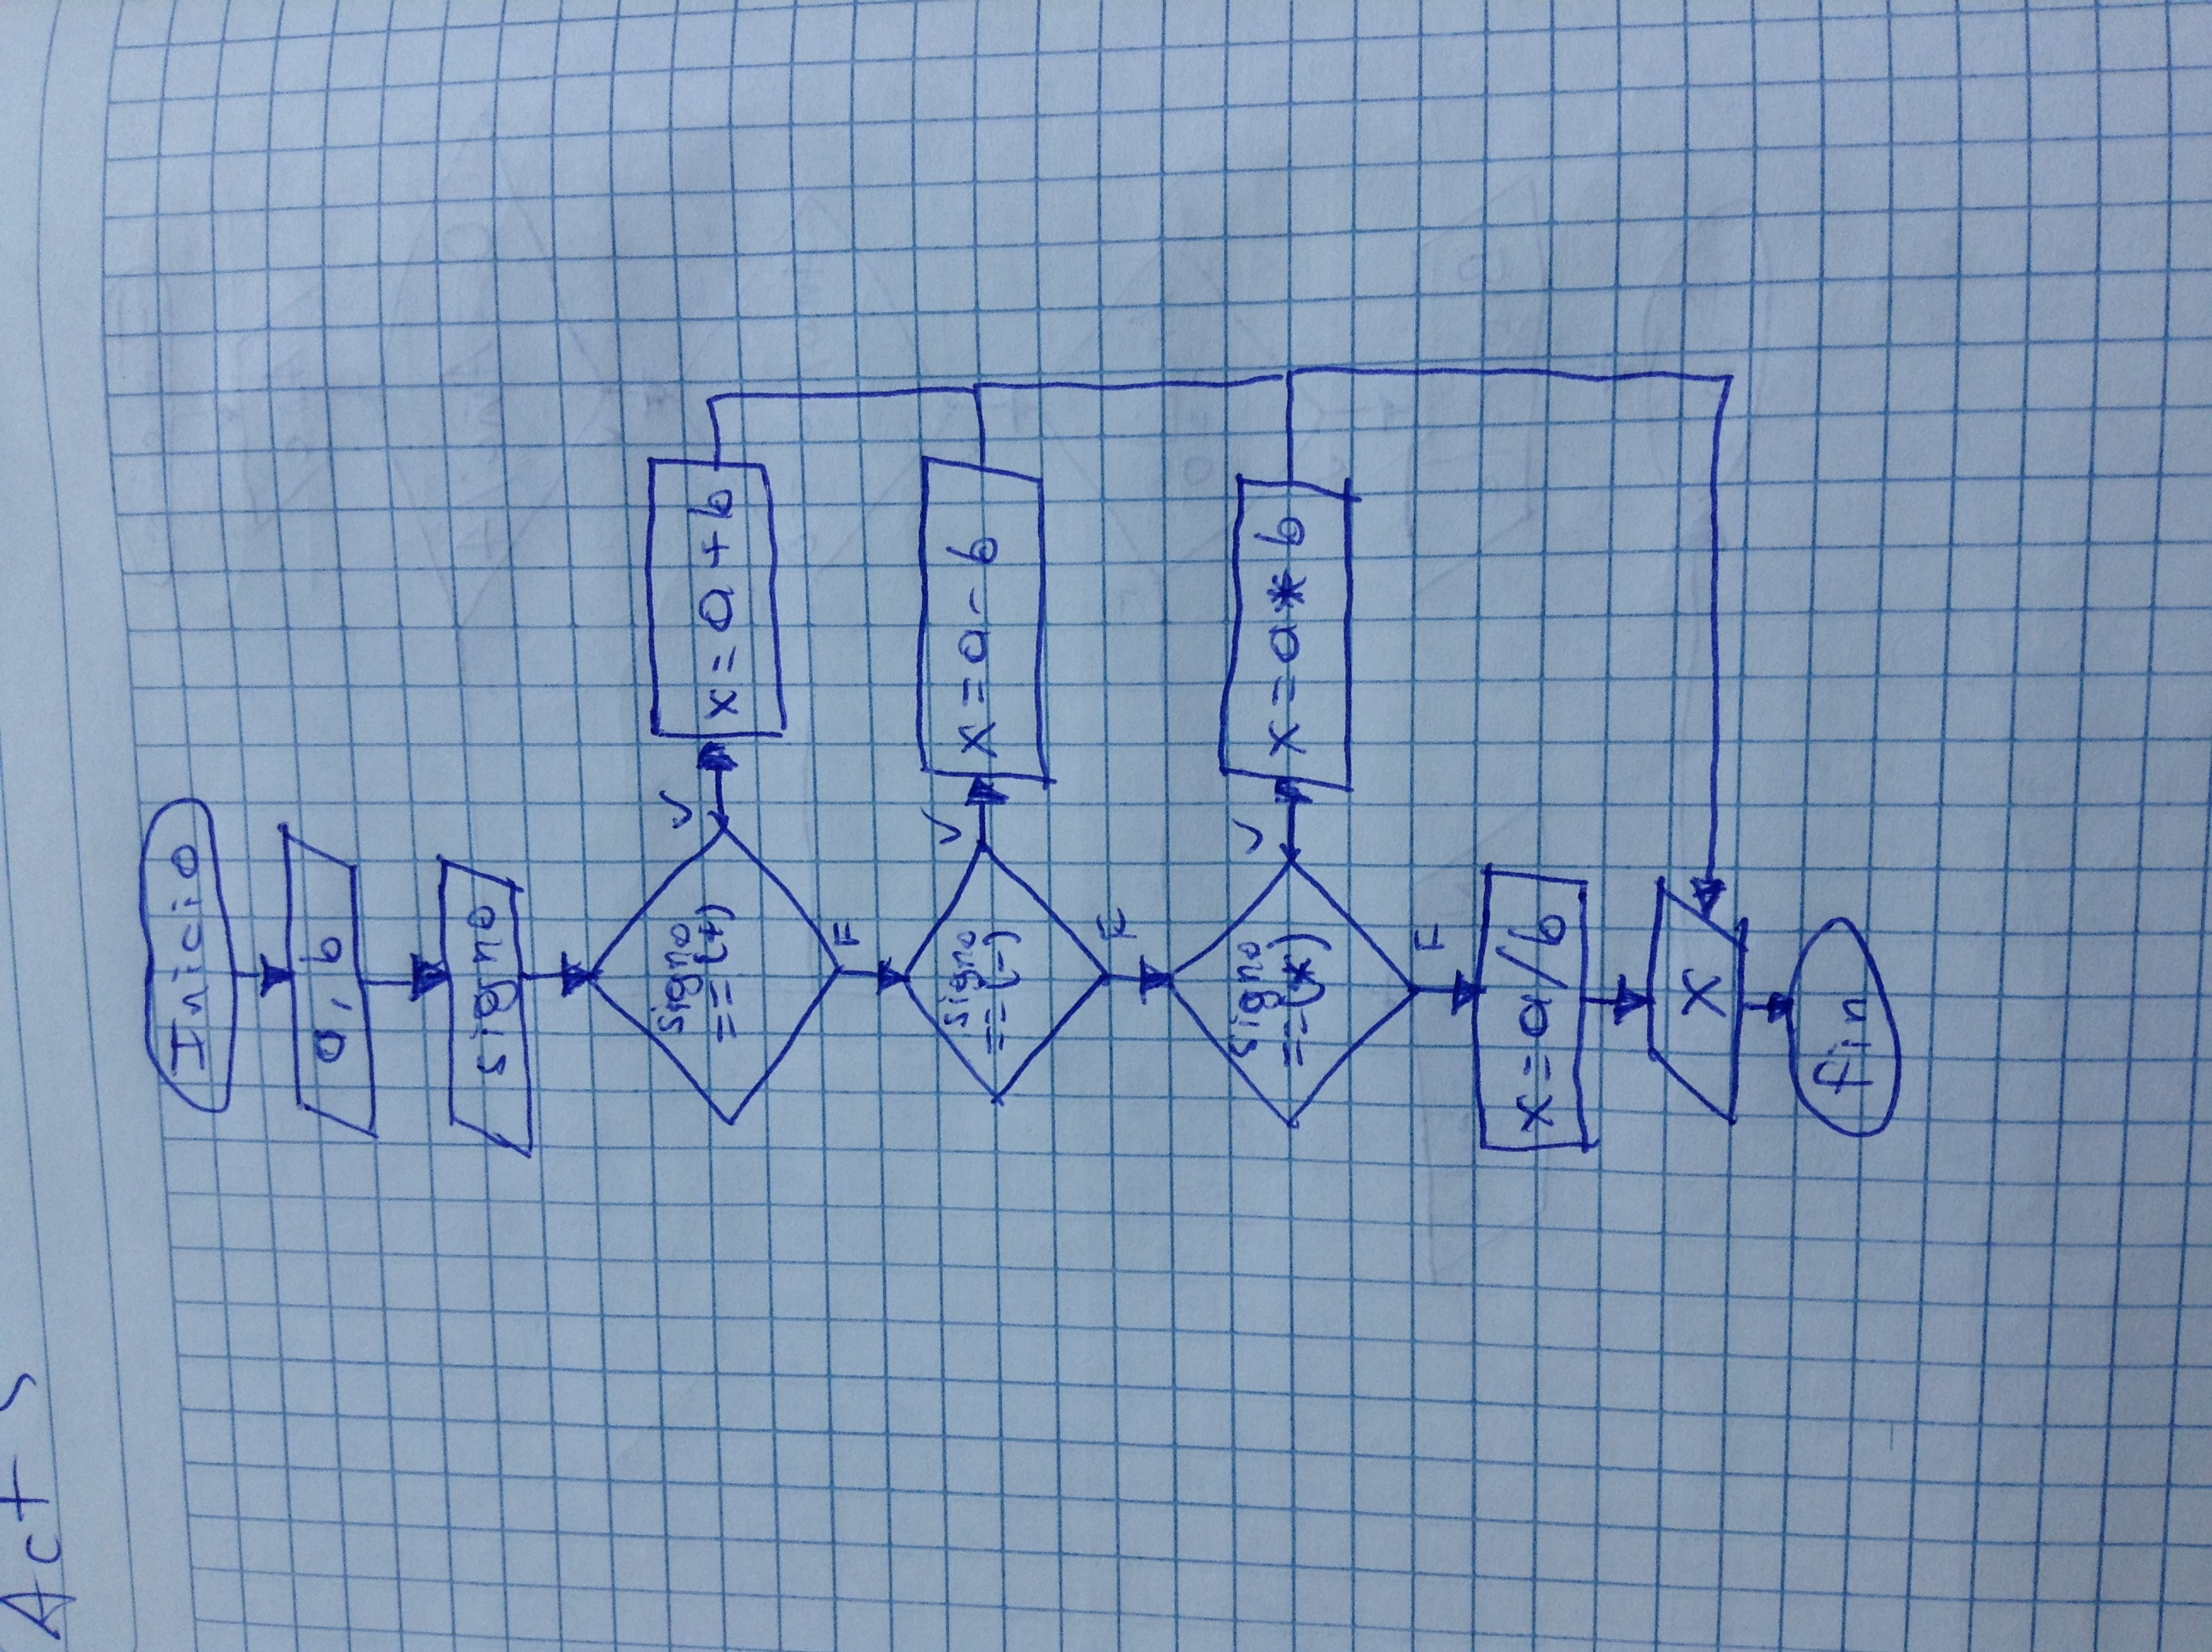 Act 5
Inicio
a, b
signo
signo
== (+)
V
x=a+b
F
signo
== (-)
V
x=a-b
F
signo
== (*)
V
x=a*b
F
x=a/b
x
fin